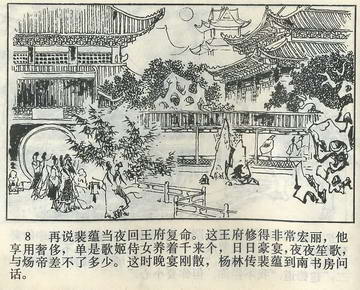 8　再说裴蕴当夜回王府复命。这王府修得非常宏丽，他
享用奢侈，单是歌姬侍女养着千来个，日日豪宴，夜夜笙歌，
与炀帝差不了多少。这时晚宴刚散，杨林传裴蕴到南书房问
话。